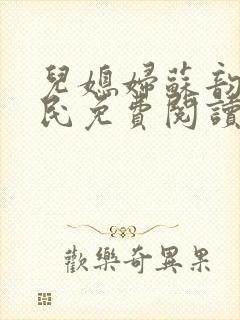 兒媳婦蘇韵
民免費閱讀
歡樂奇異果